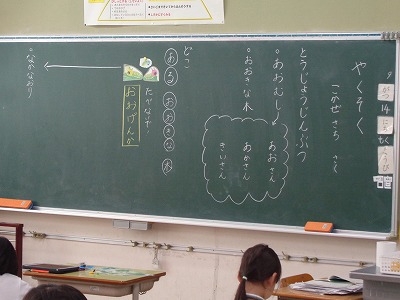 9
がつ
14
にち
もく
ようび
やくそく
こかぜ さち さく
とうじょうじんぶつ
◦あおむし
あおさん
あかさん
きいさん
◦おおきな木
どこ
ある おおきな 木
たべなや!
おおげんか
◦なかなおり